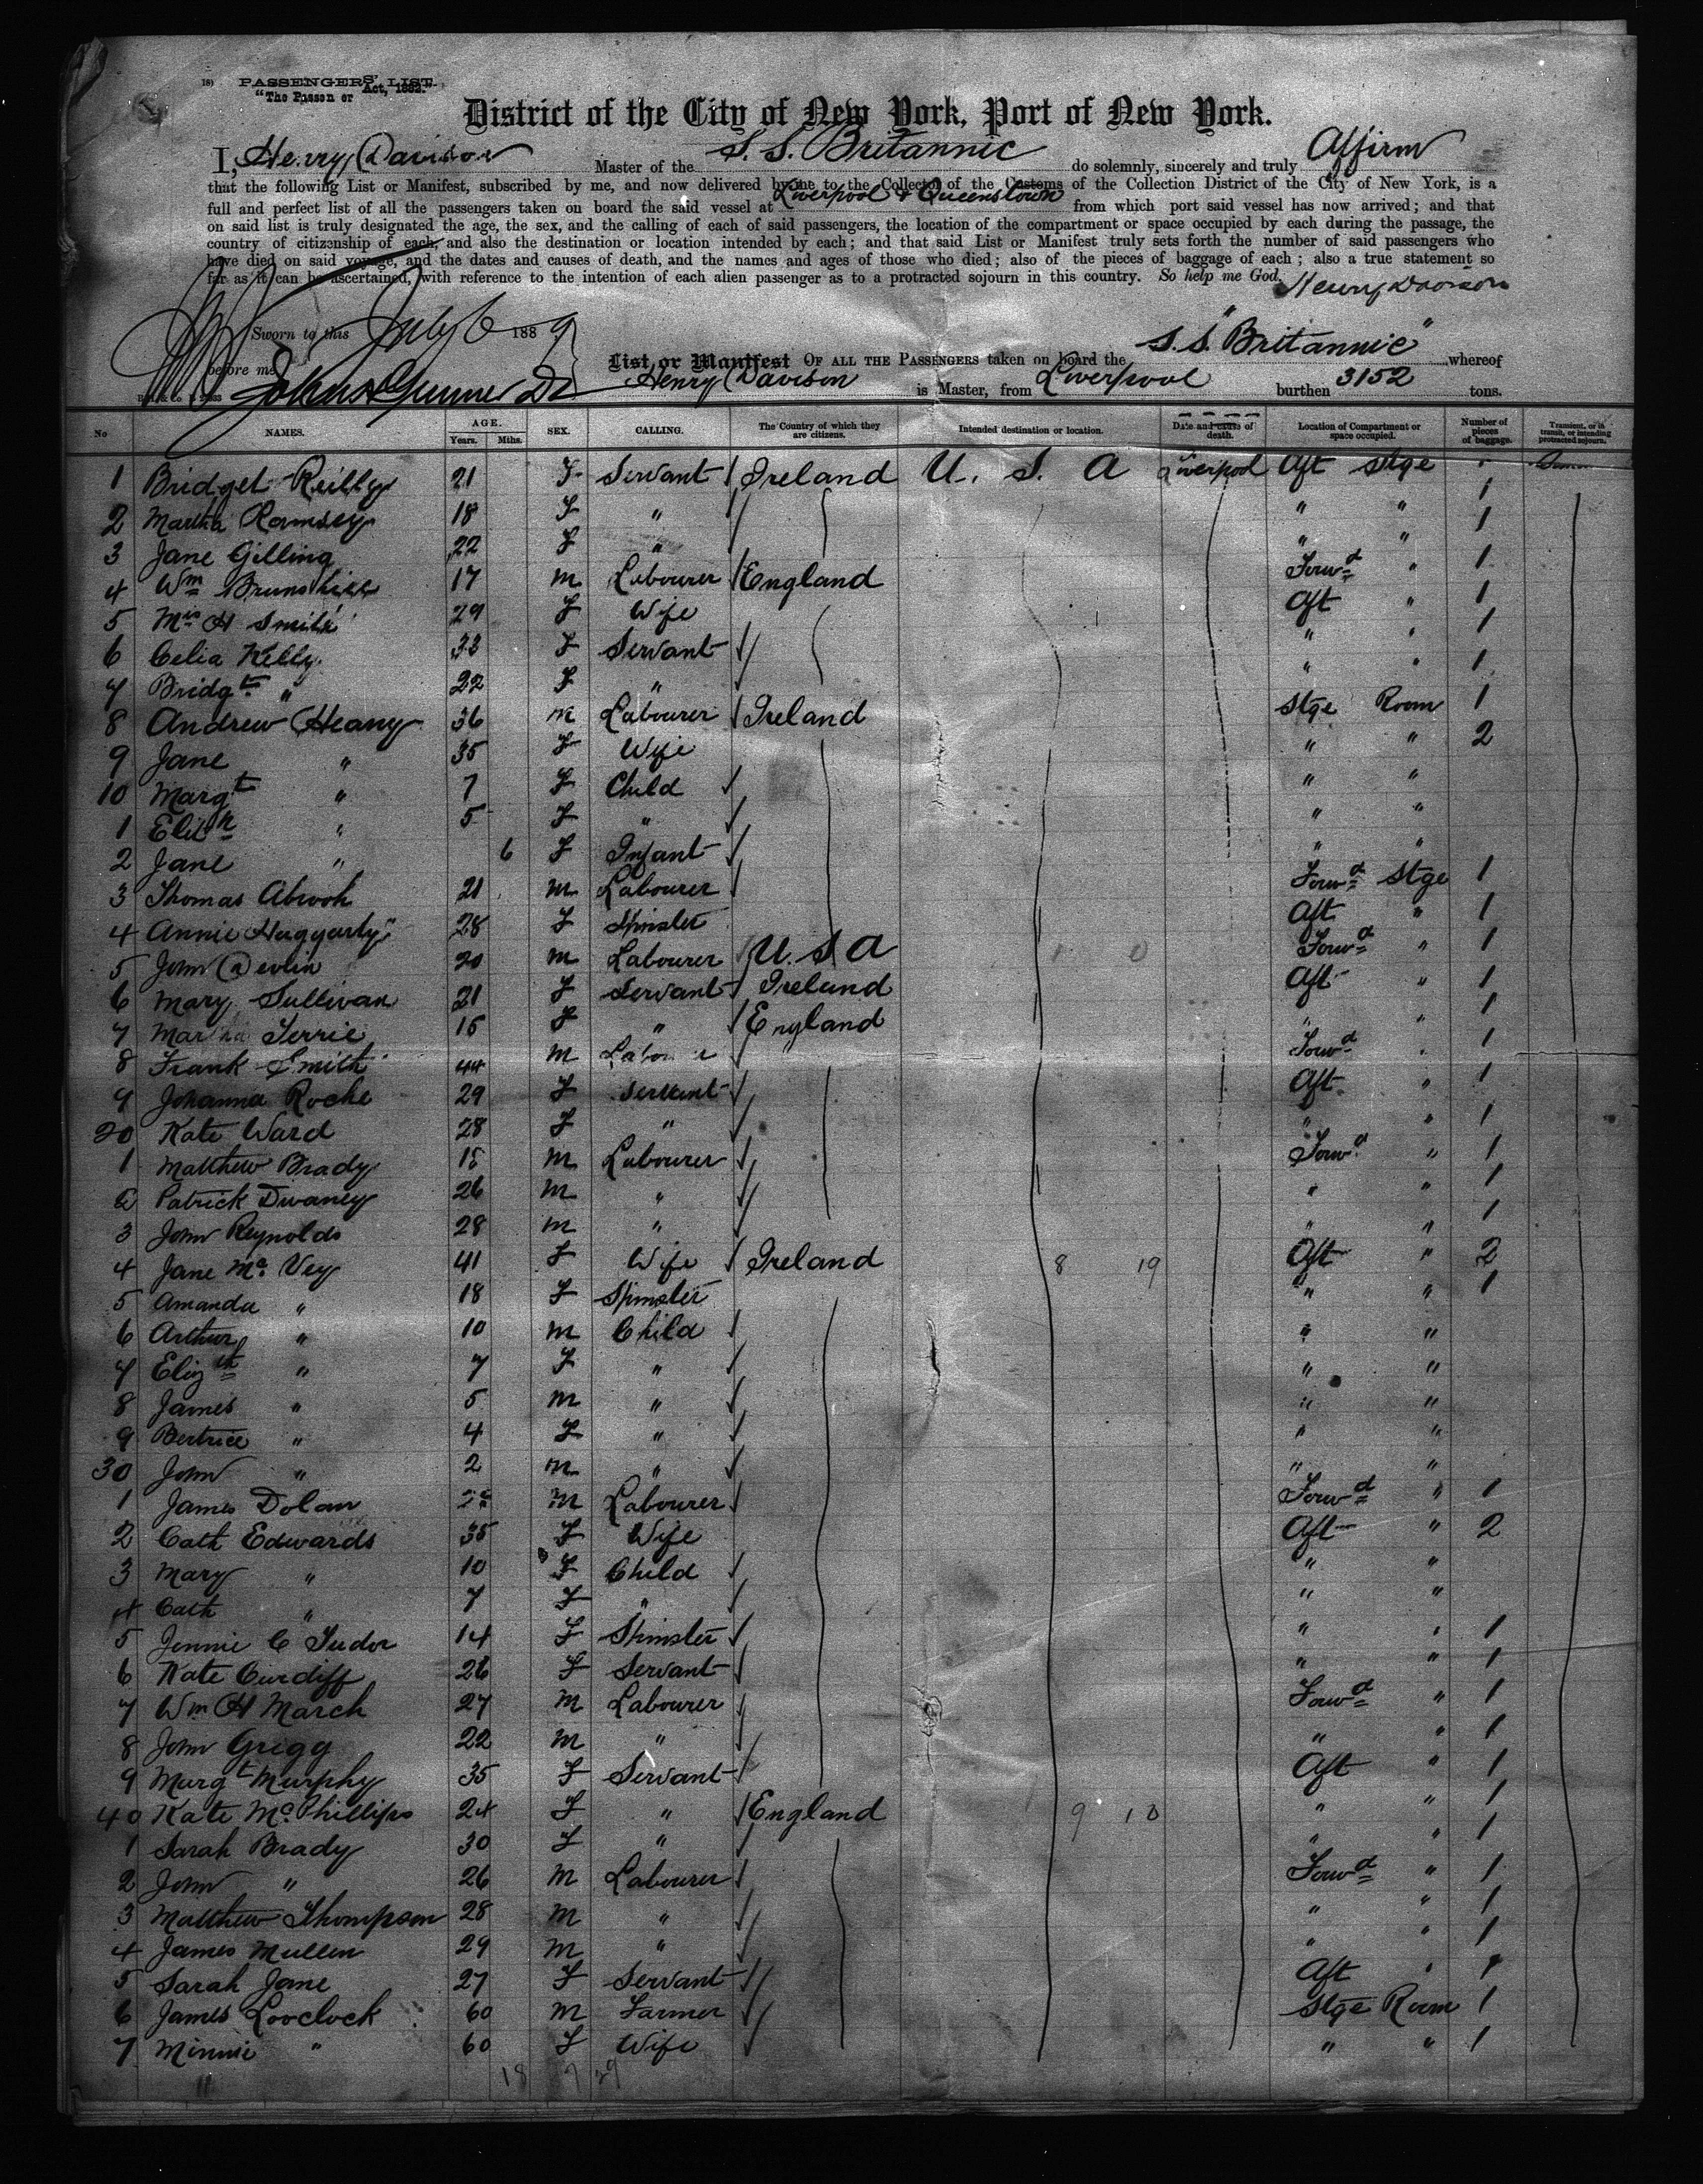 PASSENGERS' LIST.
"The Passen er Act, 1882."
District of the City of New York, Port of New York.
I, Henry Davison Master of the S. S. Britannic do solemnly, sincerely and truly Affirm
that the following List or Manifest, subscribed by me, and now delivered by me to the Collector of the Customs of the Collection District of the City of New York, is a
full and perfect list of all the passengers taken on board the said vessel at Liverpool & Queenstown from which port said vessel has now arrived; and that
on said list is truly designated the age, the sex, and the calling of each of said passengers, the location of the compartment or space occupied by each during the passage, the
country of citizenship of each, and also the destination or location intended by each; and that said List or Manifest truly sets forth the number of said passengers who
have died on said voyage, and the dates and causes of death, and the names and ages of those who died; also of the pieces of baggage of each; also a true statement so
far as it can be ascertained, with reference to the intention of each alien passenger as to a protracted sojourn in this country. So help me God.
Henry Davison
Sworn to this July 6 1889
before me
List or Manifest OF ALL THE PASSENGERS taken on board the S. S. "Britannic" whereof
Henry Davison is Master, from Liverpool burthen 3152 tons.
No NAMES. AGE. Years. Mths. SEX. CALLING. The Country of which they are citizens. Intended destination or location. Date and cause of death. Location of Compartment or space occupied. Number of pieces of baggage. Transient, or in transit, or intending protracted sojourn.
1 Bridget Reilly 21 F Servant Ireland U. S. A Liverpool Aft Stge 1
2 Martha Ramsey 18 F " " " 1
3 Jane Gilling 22 F " " " 1
4 Wm Brunskill 17 M Labourer England Forwd " 1
5 Mrs H Smith 29 F Wife Aft " 1
6 Celia Kelly 33 F Servant " " 1
7 Bridgt " 22 F " " " 1
8 Andrew Heany 36 M Labourer Ireland Stge Room 1
9 Jane " 35 F Wife " " 2
10 Margt " 7 F Child " "
1 Elizh " 5 F " " "
2 Jane " 6 F Infant " "
3 Thomas 21 M Labourer Forwd Stge 1
4 Annie Haggarty 28 F Spinster Aft " 1
5 John Devlin 20 M Labourer U. S A Forwd " 1
6 Mary Sullivan 21 F Servant Ireland Aft " 1
7 Martha Terrie 15 F " England " " 1
8 Frank Smith 44 M Labourer Forwd " 1
9 Johanna Roche 29 F Servant Aft " 1
20 Kate Ward 28 F " " " 1
1 Matthew Brady 18 M Labourer Forwd " 1
2 Patrick Dwaney 26 M " " " 1
3 John Reynolds 28 M " " " 1
4 Jane Mc Vey 41 F Wife Ireland 8 19 Aft " 2
5 Amanda " 18 F Spinster " " 1
6 Arthur " 10 M Child " "
7 Elizth " 7 F " " "
8 James " 5 M " " "
9 Bertrice " 4 F " " "
30 John " 2 M " " "
1 James Dolan M Labourer Forwd " 1
2 Cath Edwards 35 F Wife Aft " 2
3 Mary " 10 F Child " "
4 Cath " 7 F " " "
5 Jennie C Tudor 14 F Spinster " " 1
6 Kate Curdiff 26 F Servant " " 1
7 Wm H March 27 M Labourer Forwd " 1
8 John Grigg 22 M " " " 1
9 Margt Murphy 35 F Servant Aft " 1
40 Kate Mc Phillips 24 F " England 9 10 " " 1
1 Sarah Brady 30 F " " " 1
2 John " 26 M Labourer Forwd " 1
3 Matthew Thompson 28 M " " " 1
4 James Mullen 29 M " " " 1
5 Sarah Jane 27 F Servant Aft " 1
6 James Lovelock 60 M Farmer Stge Room 1
7 Minnie " 60 F Wife " " 1
18 29